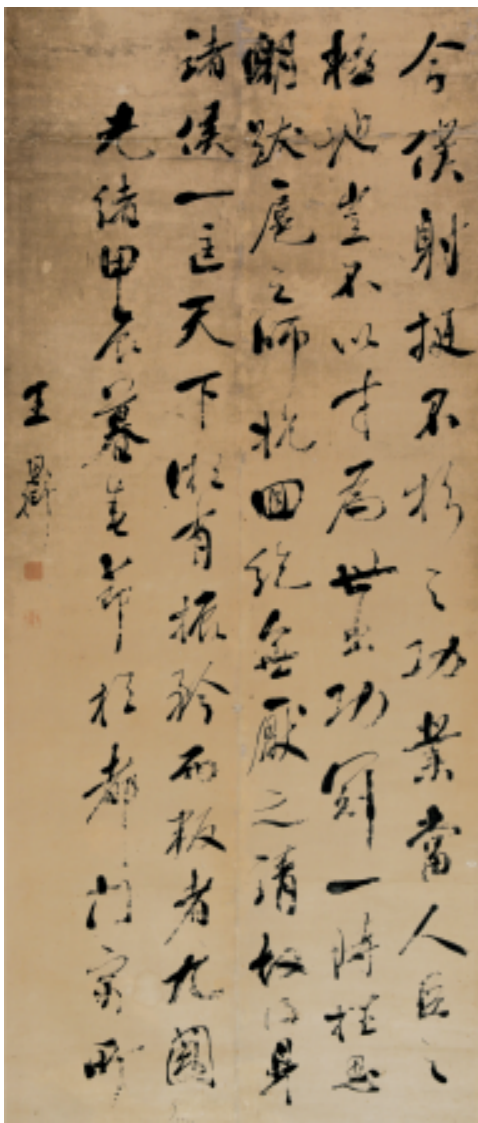 今僕射挺不朽之功業當人臣之
極地豈不以才為世出功冠一時挫思
明跋扈之師抗回紇無厭之請故得
諸侯一匡天下微有振矜而叛者九國
光緒甲辰暮春節於都門寓所
王